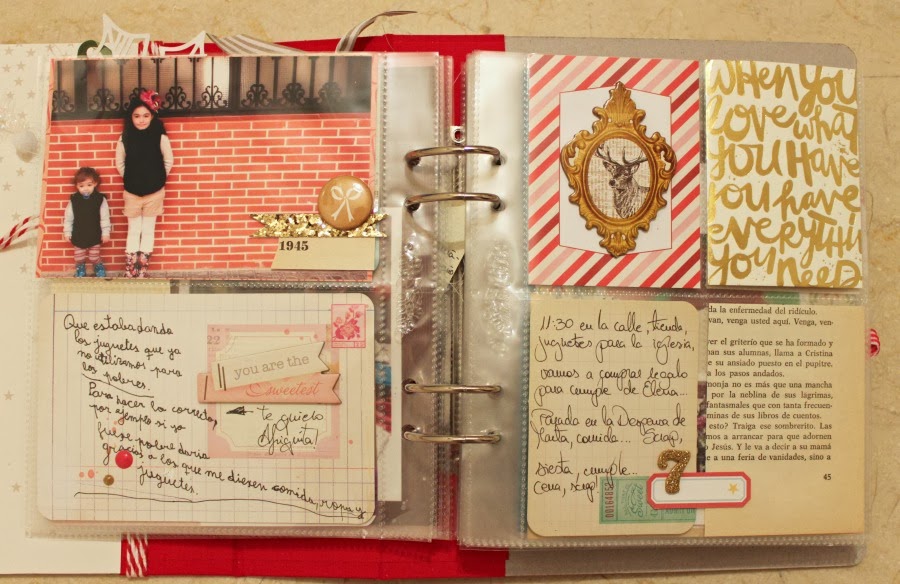 1945
Que estaba dando
los juguetes que ya
no utilizamos para
los pobres.
Para hacer lo correcto,
por ejemplo si yo
fuese pobre daría
gracias a los que me diesen comida, ropa y
juguetes.
22
you are the
Sweetest
te quiero
WHEN YOU
LOVE what
YOU HAVE
YOU have
everythin
YOU Need
11:30 en la calle, tienda,
juguetes para la iglesia,
vamos a comprar regalo
para cumple de Elena...
Parada en la Despensa de
comida... Scrap,
siesta, cumple...
cena, scrap
7
da la enfermedad del ridículo.
van, venga usted aquí. Venga, ven-
ver el griterío que se ha formado y
han sus alumnas, llama a Cristina
e su ansiado puesto en el pupitre.
a los pasos andados.
monja no es más que una mancha
por la neblina de sus lágrimas,
fantasmales que con tanta frecuen-
minas de sus libros de cuentos.
esto? Traiga ese sombrerito. Las
mos a arrancar para que adornen
Jesús. Y le va a decir a su mamá
e a una feria de vanidades, sino a
45